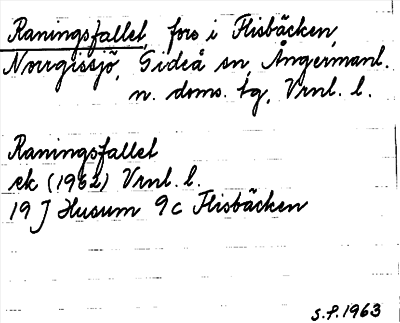 Raningsfallet, fors i Flisbäcken,
Norrgissjö, Gideå sn, Ångermanl.
n. doms. tg, Vrnl. l.
Raningsfallet
ek (1962) Vrnl. l.
19 J Husum 9c Flisbäcken
S.P. 1963